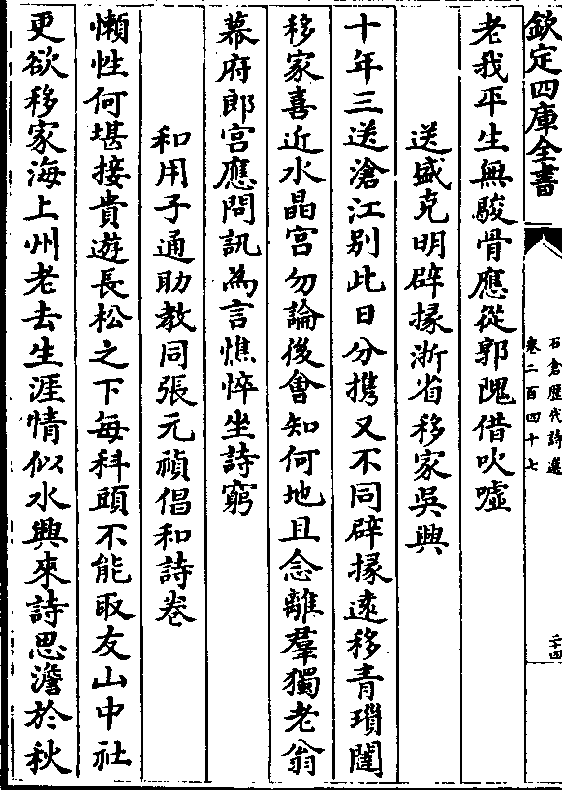 欽定四庫全書
石倉歴代詩選
卷二百四十七
二十四
老我平生無駿骨應從郭隗借吹噓
送盛克明辟掾浙省移家吳興
十年三送滄江别此日分携又不同辟掾遠移青瑣闥
移家喜近水晶宫勿論後㑹知何地且念離羣獨老翁
幕府郎官應問訊為言憔悴坐詩窮
和用子通助教同張元禎倡和詩卷
懶性何堪接貴遊長松之下每科頭不能取友山中社
更欲移家海上州老去生涯情似水興來詩思澹於秋